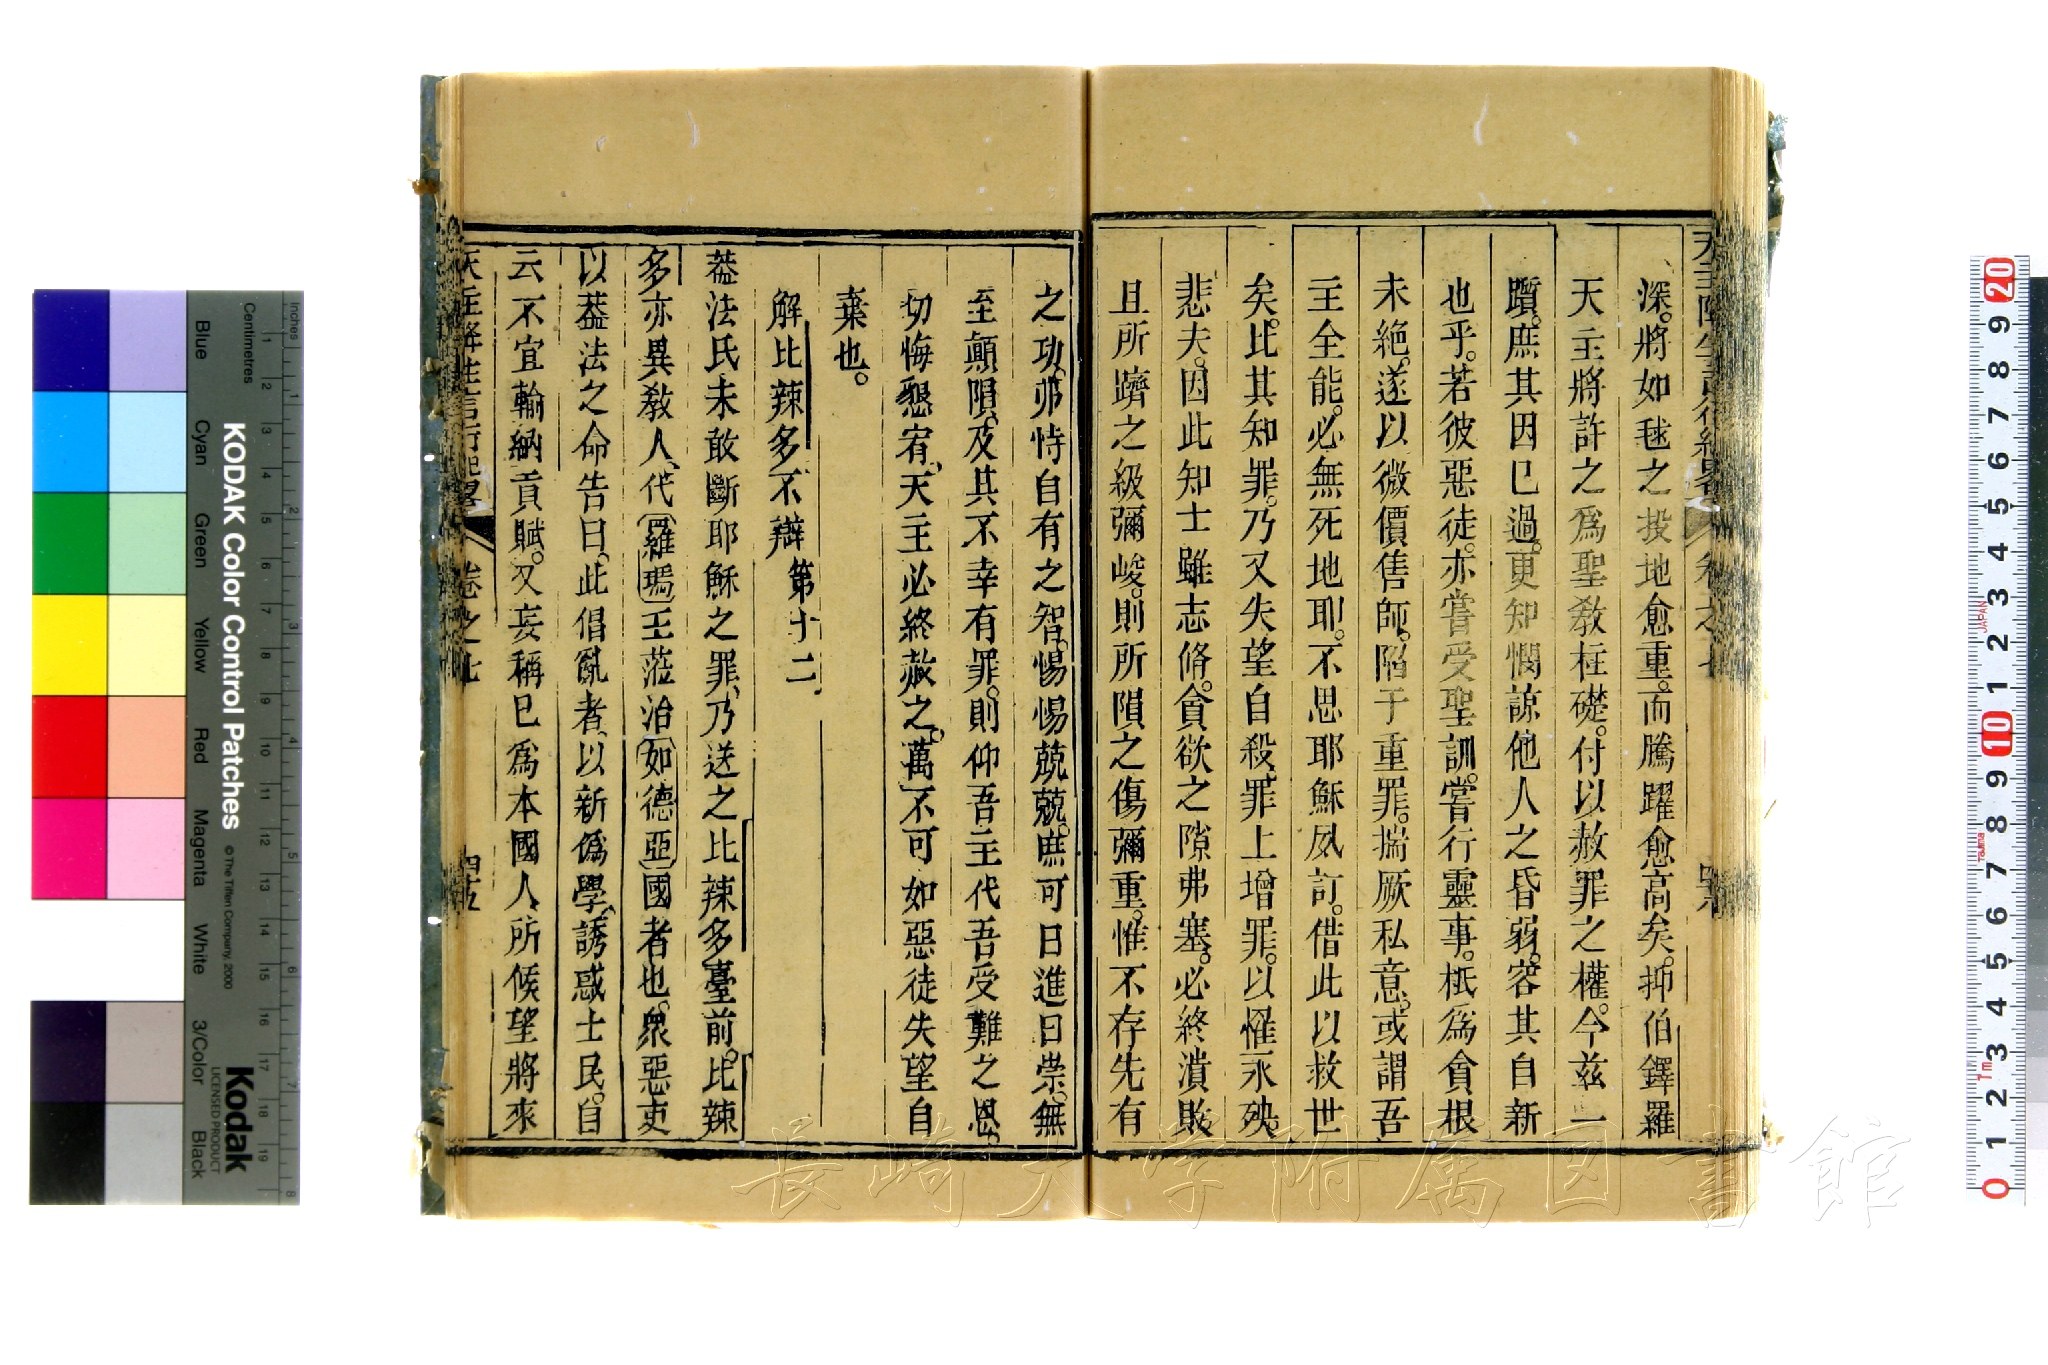 深。將如毬之投地愈重。而騰躍愈高矣。抑伯鐸羅
天主將許之爲聖敎柱礎。付以赦罪之權。今茲一
躓。庶其因已過。更知憫諒他人之昏弱。容其自新
也乎。若彼惡徒。亦嘗受聖訓。嘗行靈事。柢爲貪根
未絶。遂以微價售師。陷于重罪。揣厥私意。或謂吾
主全能。必無死地耶。不思耶穌夙訂。借此以救世
矣。比其知罪。乃又失望自殺。罪上增罪。以罹永殃。
悲夫。因此知士雖志脩。貪欲之隙弗塞。必終潰敗。
且所躋之級彌峻。則所隕之傷彌重。惟不存先有
之功。弗恃自有之智。惕惕兢兢。庶可日進日崇。無
至顚隕、及其不幸有罪。則仰吾主代吾受難之恩。
切悔懇宥、天主必終赦之。萬不可如惡徒失望自
棄也。
解比辣多不辯 第十二
葢法氏未敢斷耶穌之罪、乃送之比辣多臺前。比辣
多亦異敎人、代羅瑪王蒞治如德亞國者也。衆惡吏
以葢法之命告曰。此倡亂者、以新僞學、誘惑士民。自
云不宜輸納貢賦。又妄稱已爲本國人所候望將來
天主降生言行紀畧 卷之七
KODAK Color Control Patches
© The Tiffen Company, 2000
Kodak
LICENSED PRODUCT
Inches
Centimetres
Blue
Cyan
Green
Yellow
Red
Magenta
White
3/Color
Black
JAPAN
Tajima
長崎大学附属図書館